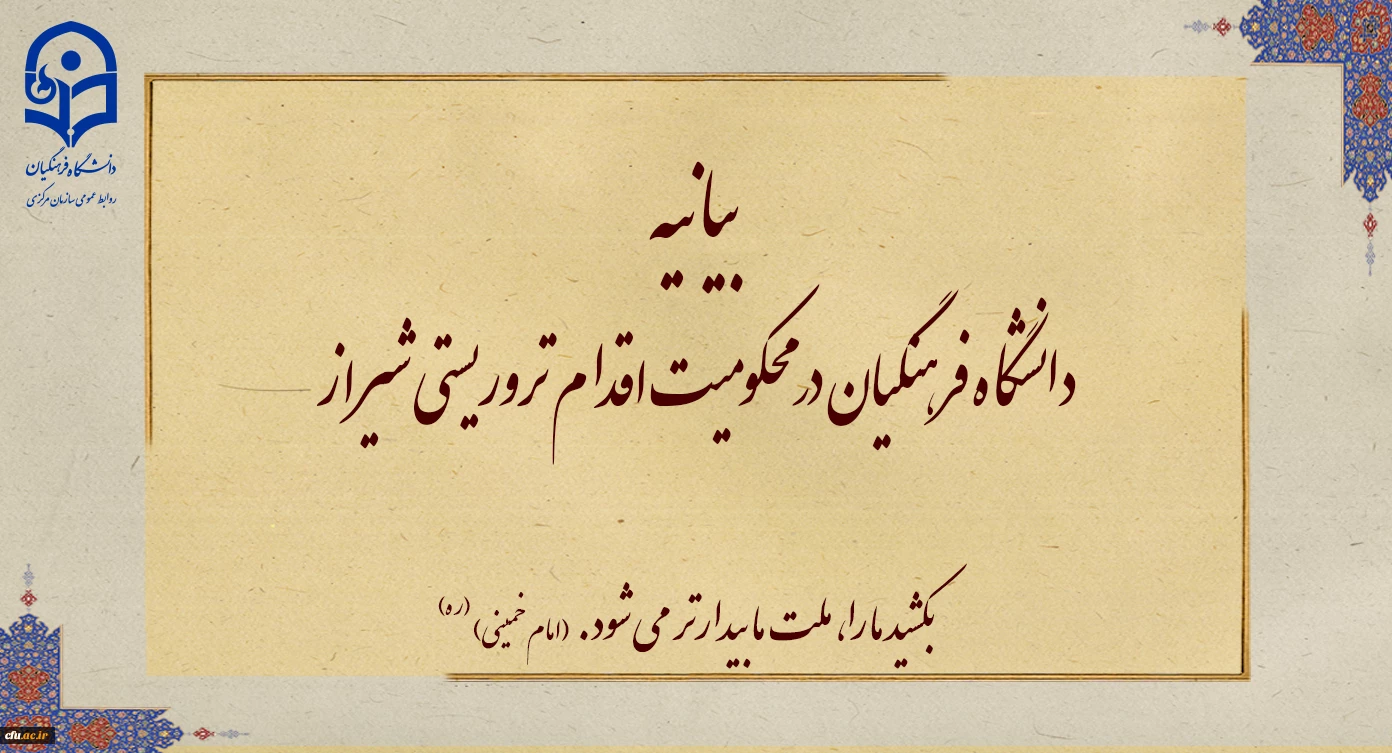 دانشگاه فرهنگیان
روابط عمومی سازمان مرکزی
بیانیه
دانشگاه فرهنگیان در محکومیت اقدام تروریستی شیراز
بکشید ما را، ملت ما بیدارتر می شود. (امام خمینی) (ره)
cfu.ac.ir